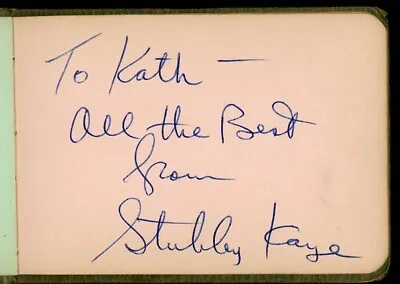 To Kath —
All the Best
from
Stubby Kaye